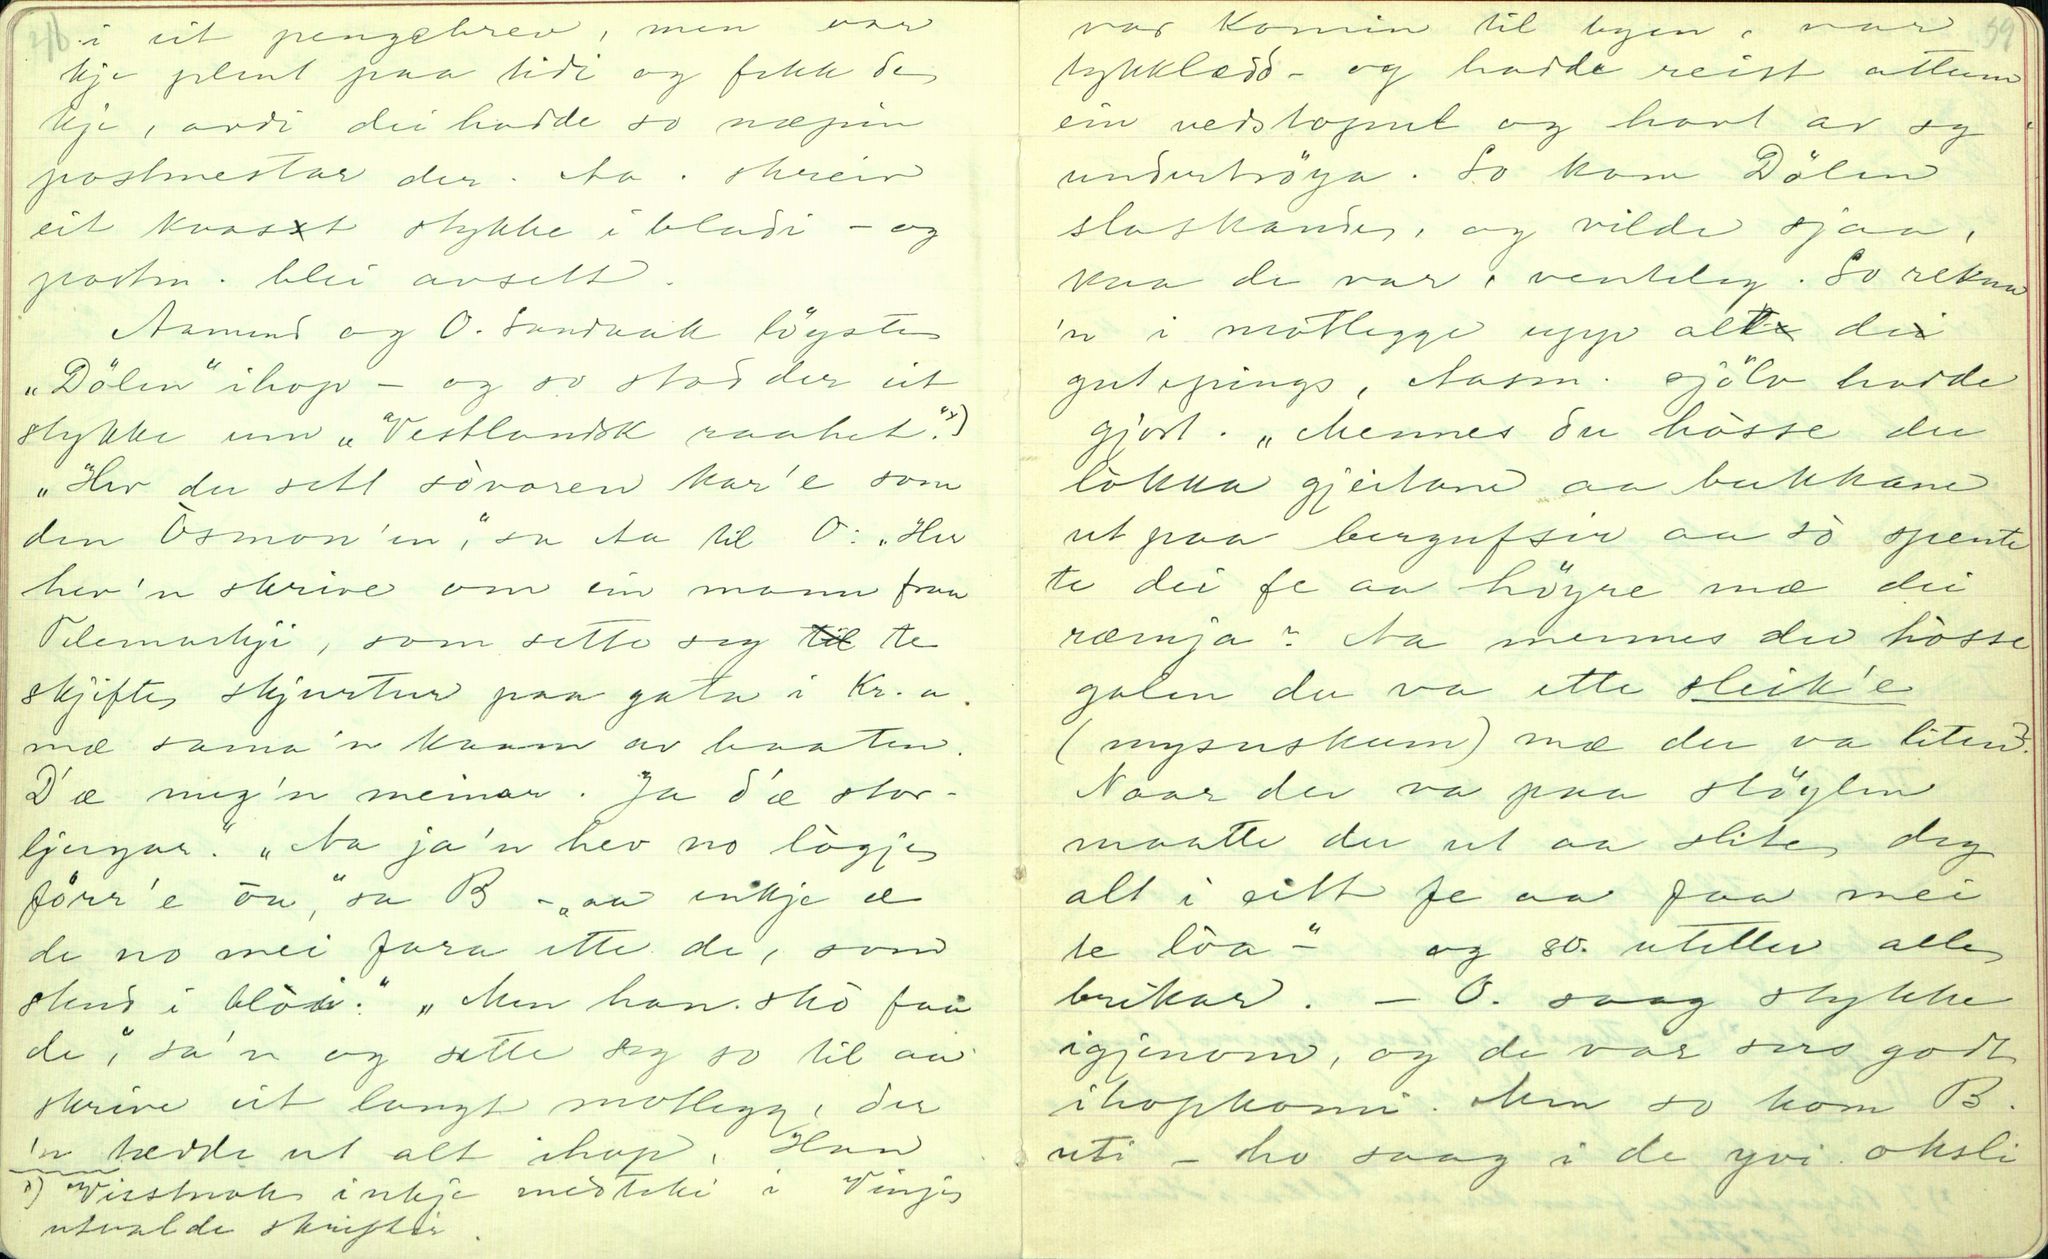 i eit pengebrev, men var
kje plent paa tidi og fekk de
kje, avdi dei hadde so næpin
postmestar der. Aa. skreiv
eit kvast stykke i bladi – og
postm. blei avsett.
Aamund og O. Sandvak löyste
„Dölen" ihop – og so stod der eit
stykke um „Vestlandsk raahet".x)
„Hev du sett sòvoren kar'e som
den Òsmon'en," sa Aa til O: „Her
hev'n skrive om ein mann fraa
Telemarkji, som sette seg te
skjifte skjurtur paa gata i Kr.a
mæ sama'n kaam av baaten.
D'æ meg'n meinar. Ja d'æ stor-
ljugar." „Aa ja'n hev no lògje
förr'e òu," sa B – „aa inkje æ
de no mei fara ette de, som
stend i blòi." „Men han skò faa
de," sa'n og sette seg so til aa
skrive eit langt motlegg, der
'n tædde ut alt ihop. Han
x) Visstnok inkje medteki i Vinjes
utvalde skrifter.
59
var komin til byen, var
tykklædd – og hadde reist attum
ein vedstapul og havt av seg
undertröya. So kom Dölen
slaskande, og vilde sjaa,
kaa de var, venteleg. So rekna
'n i motlegge upp alt de
gutepings, Aasm. sjölv hadde
gjort. „Mennes du hòsse du
lòkka gjeitane aa bukkane
ut paa bergufsir aa sò spente
te dei fe aa höyre mæ dei
ræmja? Aa mennes du hòsse
galen du va ette sleik'e
(mysuskum) mæ du va liten?
Naar du va paa stöylen
maatte du ut aa slite deg
alt i eitt fe aa faa mei
te lòa –" og so. utetter alle
brikar. – O. saag stykke
igjenom, og de var sers godt
ihopkomi. Men so kom B.
uti – ho saag i de yvi oksli